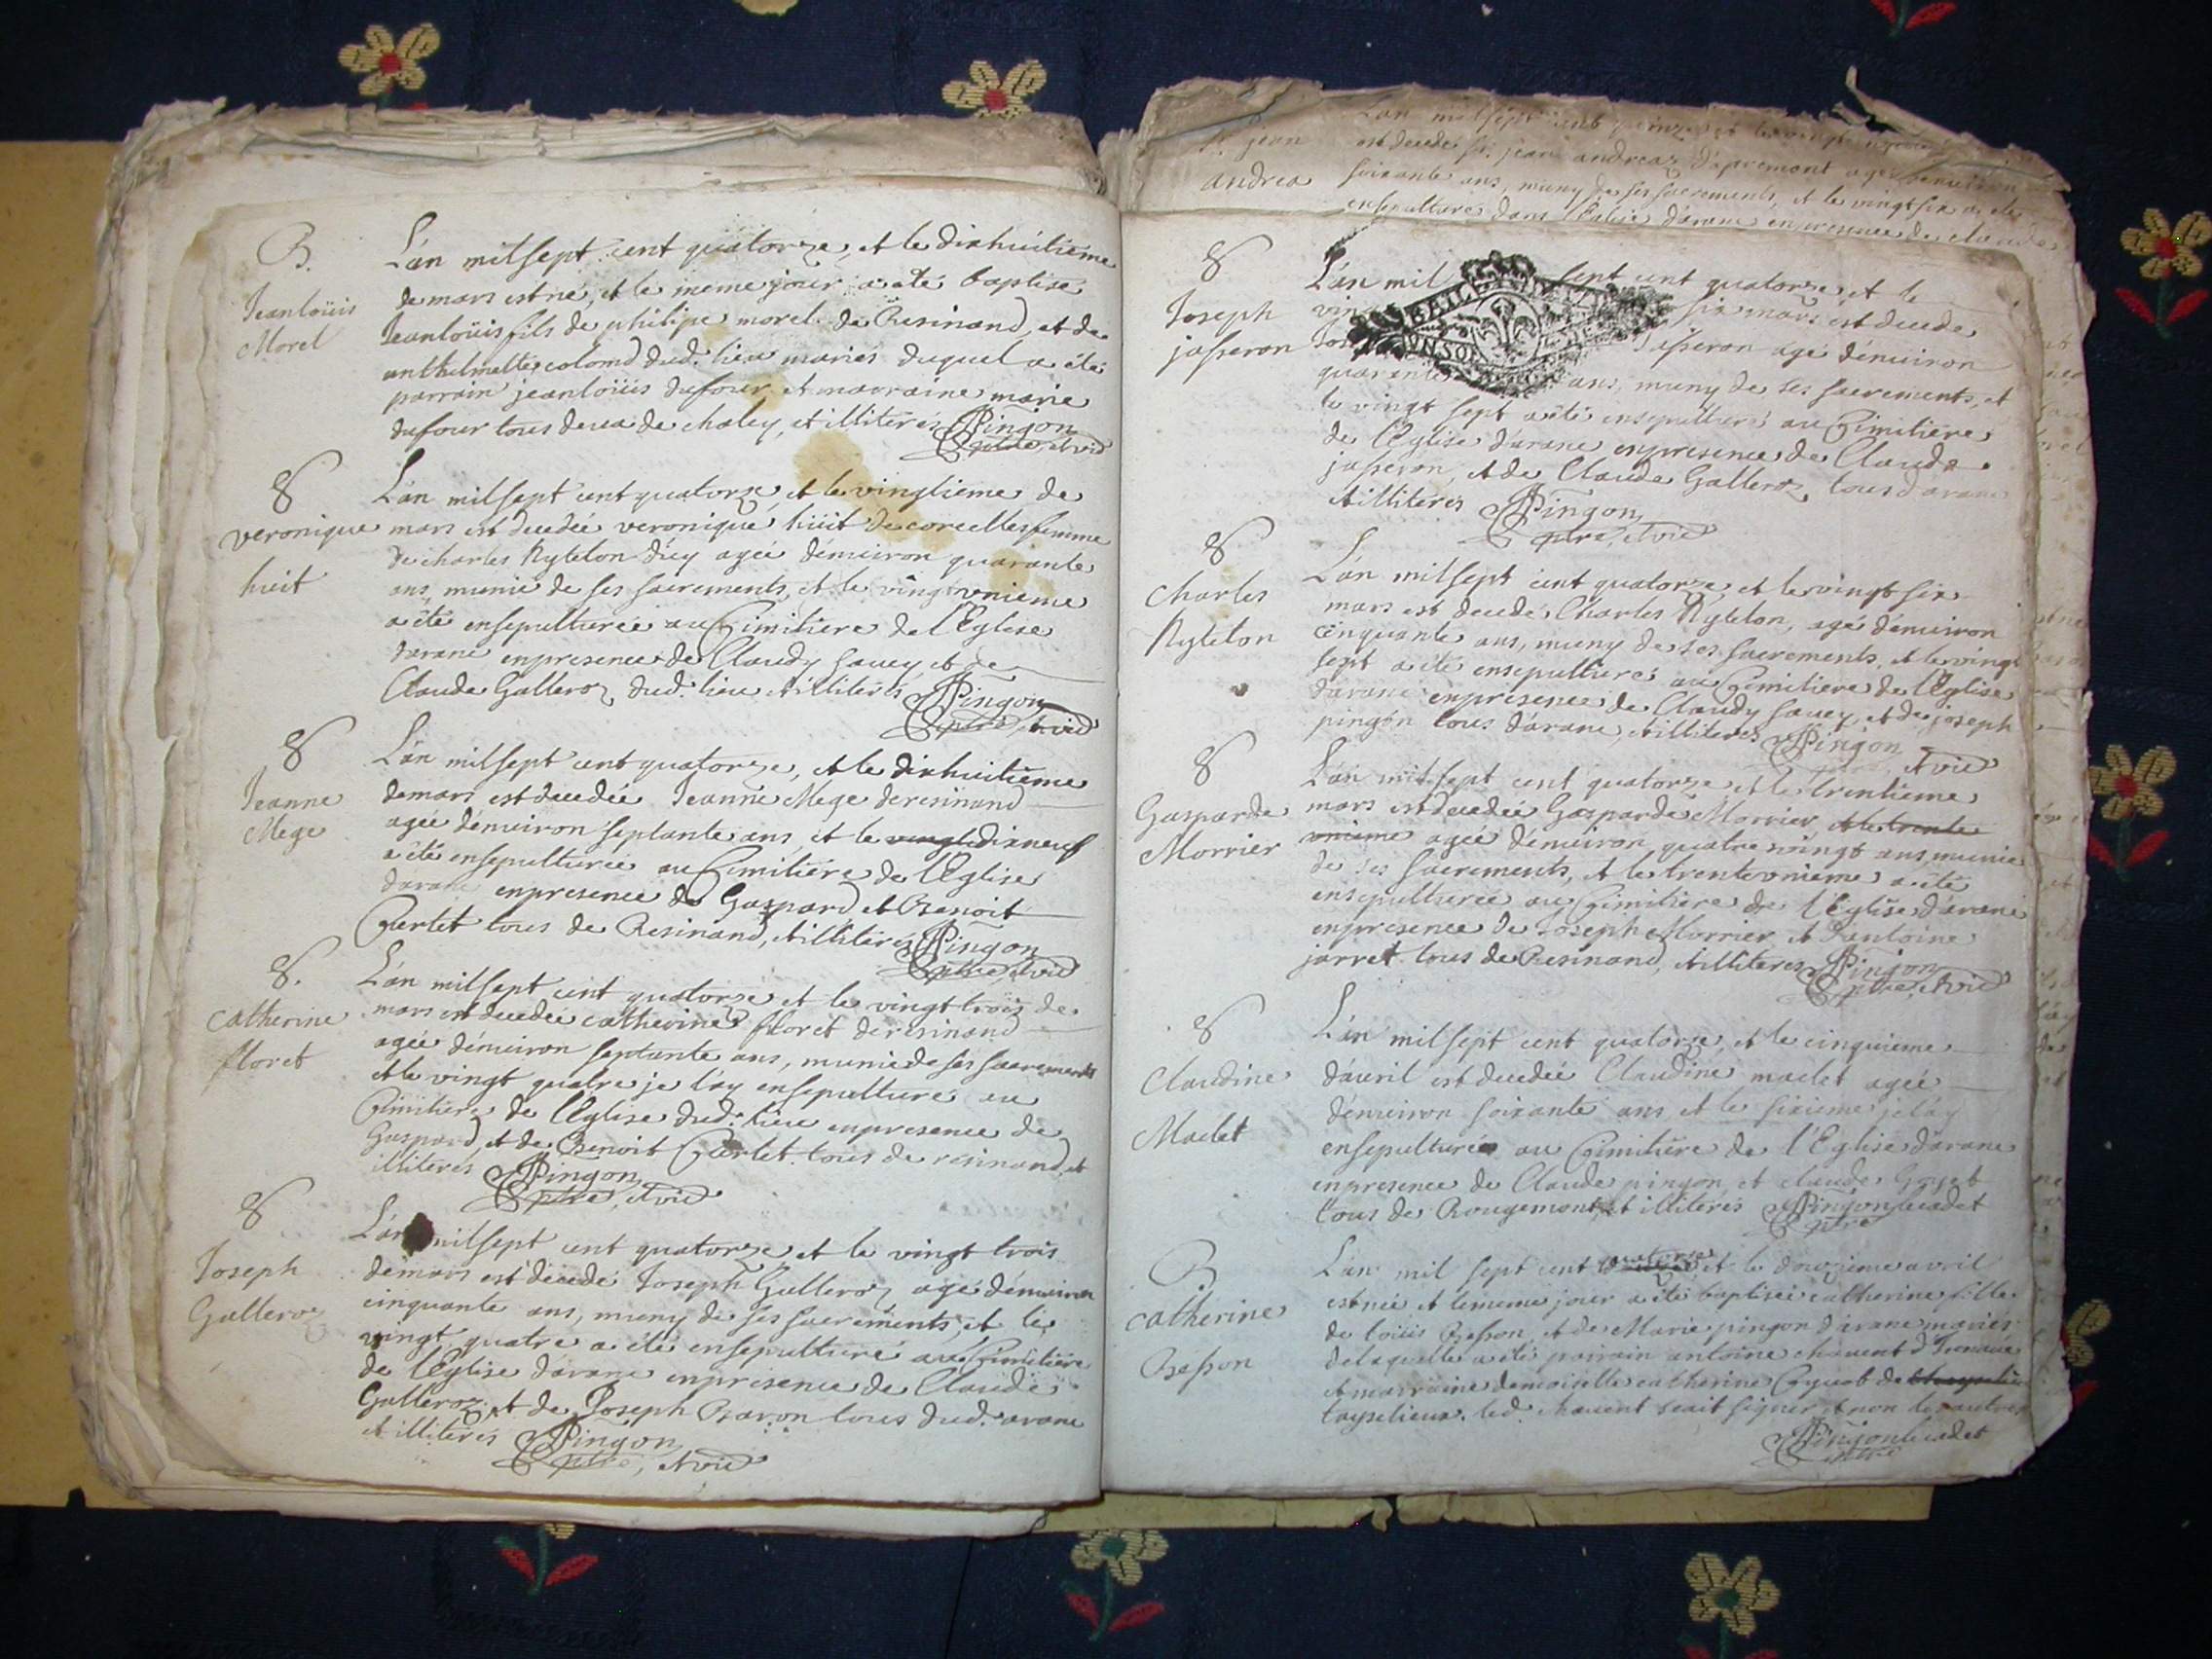 B.
Jeanloüis
Morel
L'an milsept cent quatorze, et le dixhuitieme
de mars est né, et le meme jour a été baptisé
Jeanloüis fils de philipe morel de Resinand, et de
anthelmette colomd dud. lieu mariés duquel a été
parrain jeanloüis dufour et marraine marie
dufour tous deux de chaley, et illiterés Pingon
ptre, et vic
8
veronique
huit
L'an milsept cent quatorze, et le vingtieme de
mars est decedée veronique huit de corcelles femme
de charles Nyleton d'ey agée d'enuiron quarante
ans, munie de ses sacrements, et le vingtvnieme
a été ensepulturée au Cimitiere de l'Eglise
darane enpresence de Claudy sauey et de
Claude Galleroz dud. lieu et illiterés Pingon
ptre, et vic
8
Jeanne
Mege
L'an milsept cent quatorze, et le dixhuitieme
de mars est decedée Jeanne Mege de resinand
agée d'enuiron septante ans, et le vingt dixneuf
a été ensepulturée au Cimitière de l'Eglise
darane enpresence de Gaspard et Benoit
Curtet tous de Resinand, et illiterés Pingon
ptre, et vic
8.
catherine
floret
L'an milsept cent quatorze et le vingt trois de
mars est decedée catherine floret de resinand
agée d'enuiron septante ans, munie de ses sacrements
et le vingt quatre je l'ay ensepulturé au
Cimitiere de l'Eglise dud. lieu enpresence de
Gaspard, et de Benoit Curtet tous de resinand, et
illiterés Pingon
ptre, et vic
8
Joseph
Galleroz
L'an milsept cent quatorze et le vingt trois
de mars est decedé Joseph Galleroz agé d'enuiron
cinquante ans, muny de ses sacrements, et le
vingt quatre a été ensepulturé au Cimitière
de l'Eglise darane enpresence de Claude
Galleroz et de Joseph Baron tous dud. arane
et illiterés Pingon
ptre, et vic
Sr. jean
andrea
L'an milsept cent quinze et le vingt
est decedé sr. jean andreaz d'apremont agé denuiron
soixante ans, muny de ses sacrements, et le vingt six a été
ensepulturé dans l'Eglise d'arane enpresence de claude
8
Joseph
jasseron
L'an mil sept cent quatorze et le
vin six mars est decedé
Jos jasseron agé d'enuiron
quarante ans, muny de ses sacrements, et
le vingt sept a été ensepulturé au Cimitiere
de l'Eglise d'arane enpresence de Claude
jasseron, et de Claude Galleroz, tous d'arane
et illiterés Pingon
ptre, et vic
8
Charles
Nyleton
L'an milsept cent quatorze, et le vingt six
mars est decedé Charles Nyleton, agé d'enuiron
cinquante ans, muny de ses sacrements, et le vingt
sept a été ensepulturé au Cimitiere de l'Eglise
d'arane enpresence de Claudy sauey, et de joseph
pingon tous d'arane, et illiterés Pingon
et vic
8
Gasparde
Morrier
L'an milsept cent quatorze et le trentieme
mars est decedée Gasparde Morrier, et le trente
vnieme agée d'enuiron quatre vingt ans, munie
de ses sacrements, et le trentevnieme a été
ensepulturée au Cimitiere de l'Eglise d'arane
enpresence de Joseph Morrier, et d'antoine
jarret tous de Resinand, et illiterés Pingon
ptre, et vic
8
Claudine
Maclet
L'an milsept cent quatorze, et le cinquieme
d'auril est decedée Claudine maclet agée
d'enuiron soixante ans, et le sixieme je l'ay
ensepulturée au Cimitière de l'Eglise d'arane
enpresence de Claude pingon, et claude Goyet
tous de Rougemont, et illiterés Pingon le cadet
ptre
B.
catherine
Besson
L'an mil sept cent quatorze et le douzieme avril
est née et le meme jour a été baptisée catherine fille
de loüis Besson, et de Marie pingon d'arane mariés
de laquelle a été parrain antoine chauent
et marraine demoiselle catherine
led. chauent scait signer, et non les autres
Pingon le cadet
ptre